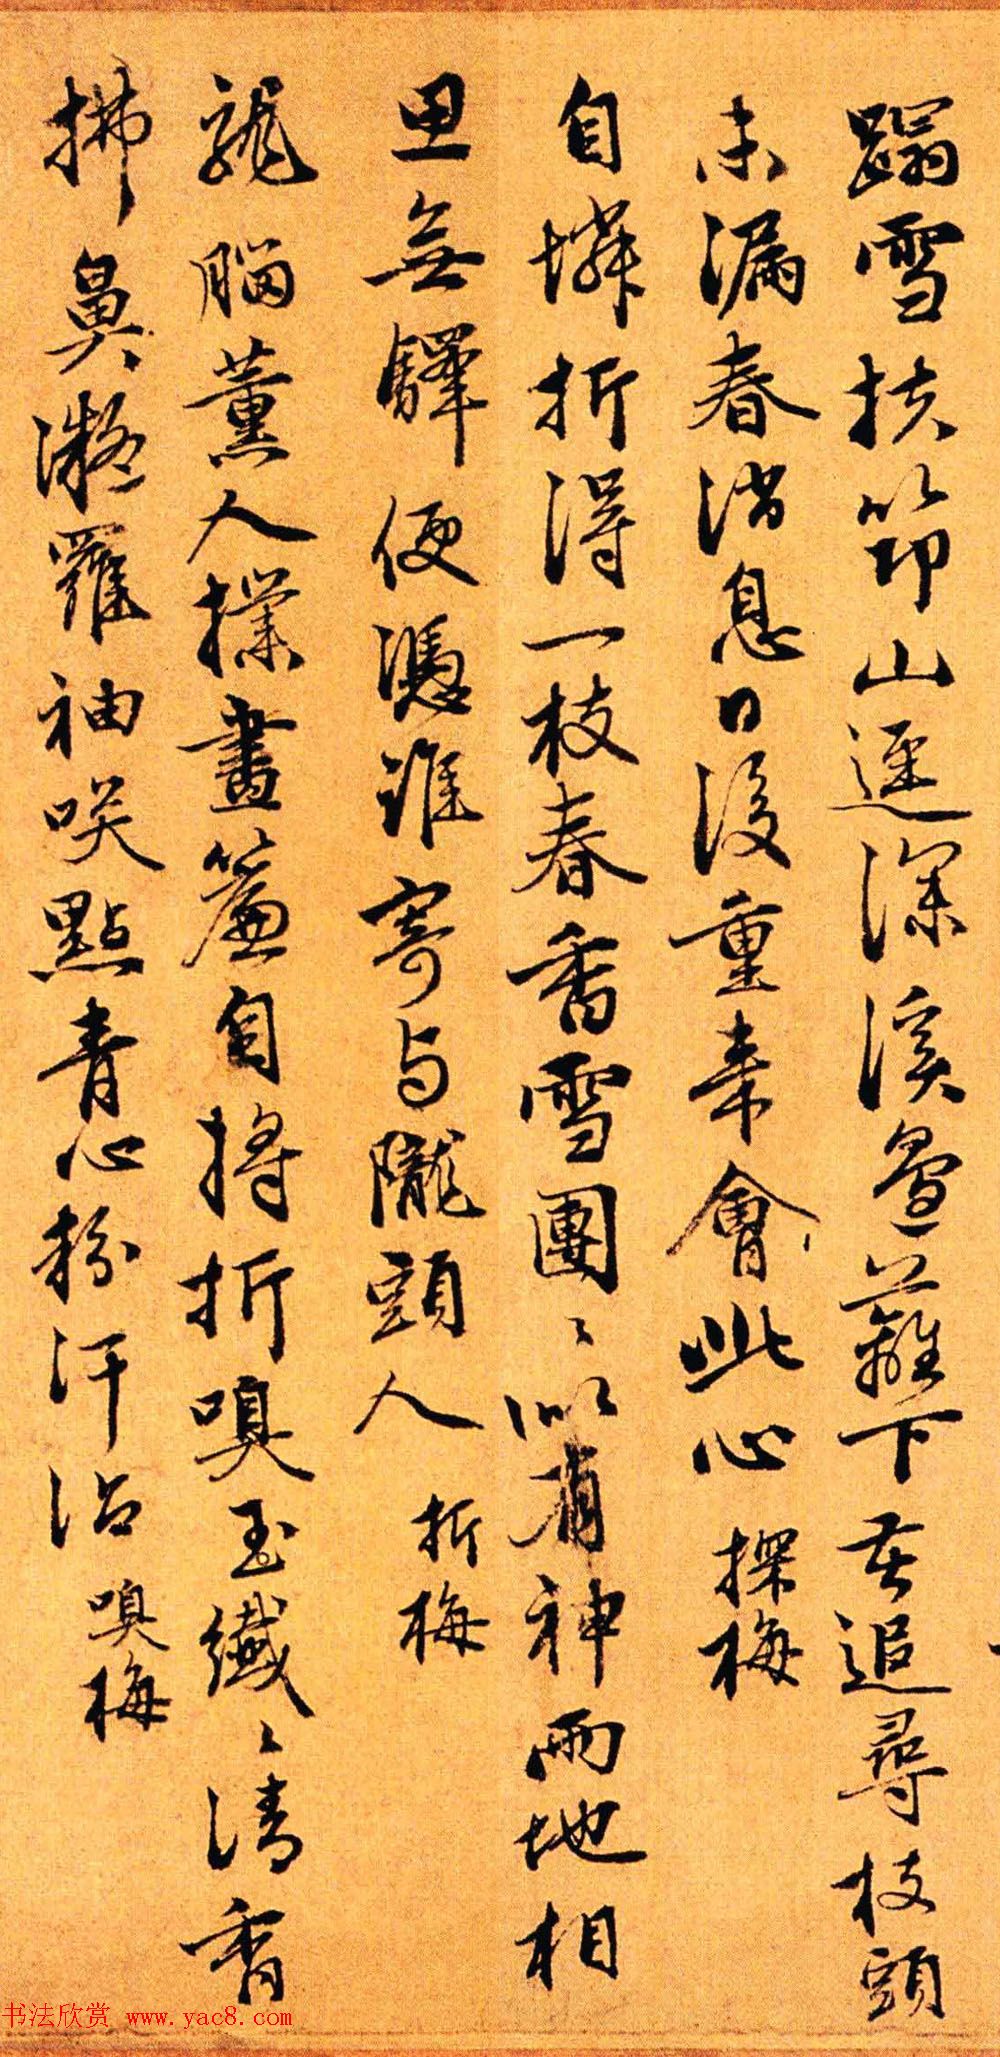 蹋雪扶筇山逕深溪邊蘺下苦追尋枝頭
未漏春消息日後重來會此心 探梅
自憐折得一枝春香雪團〻似有神兩地相
思無驛便憑誰寄与隴頭人 折梅
龍腦薰人撲畫簾自將折嗅玉纖〻清香
拂鼻凝羅袖咲點青心粉汗沾 嗅梅
书法欣赏 www.yac8.com